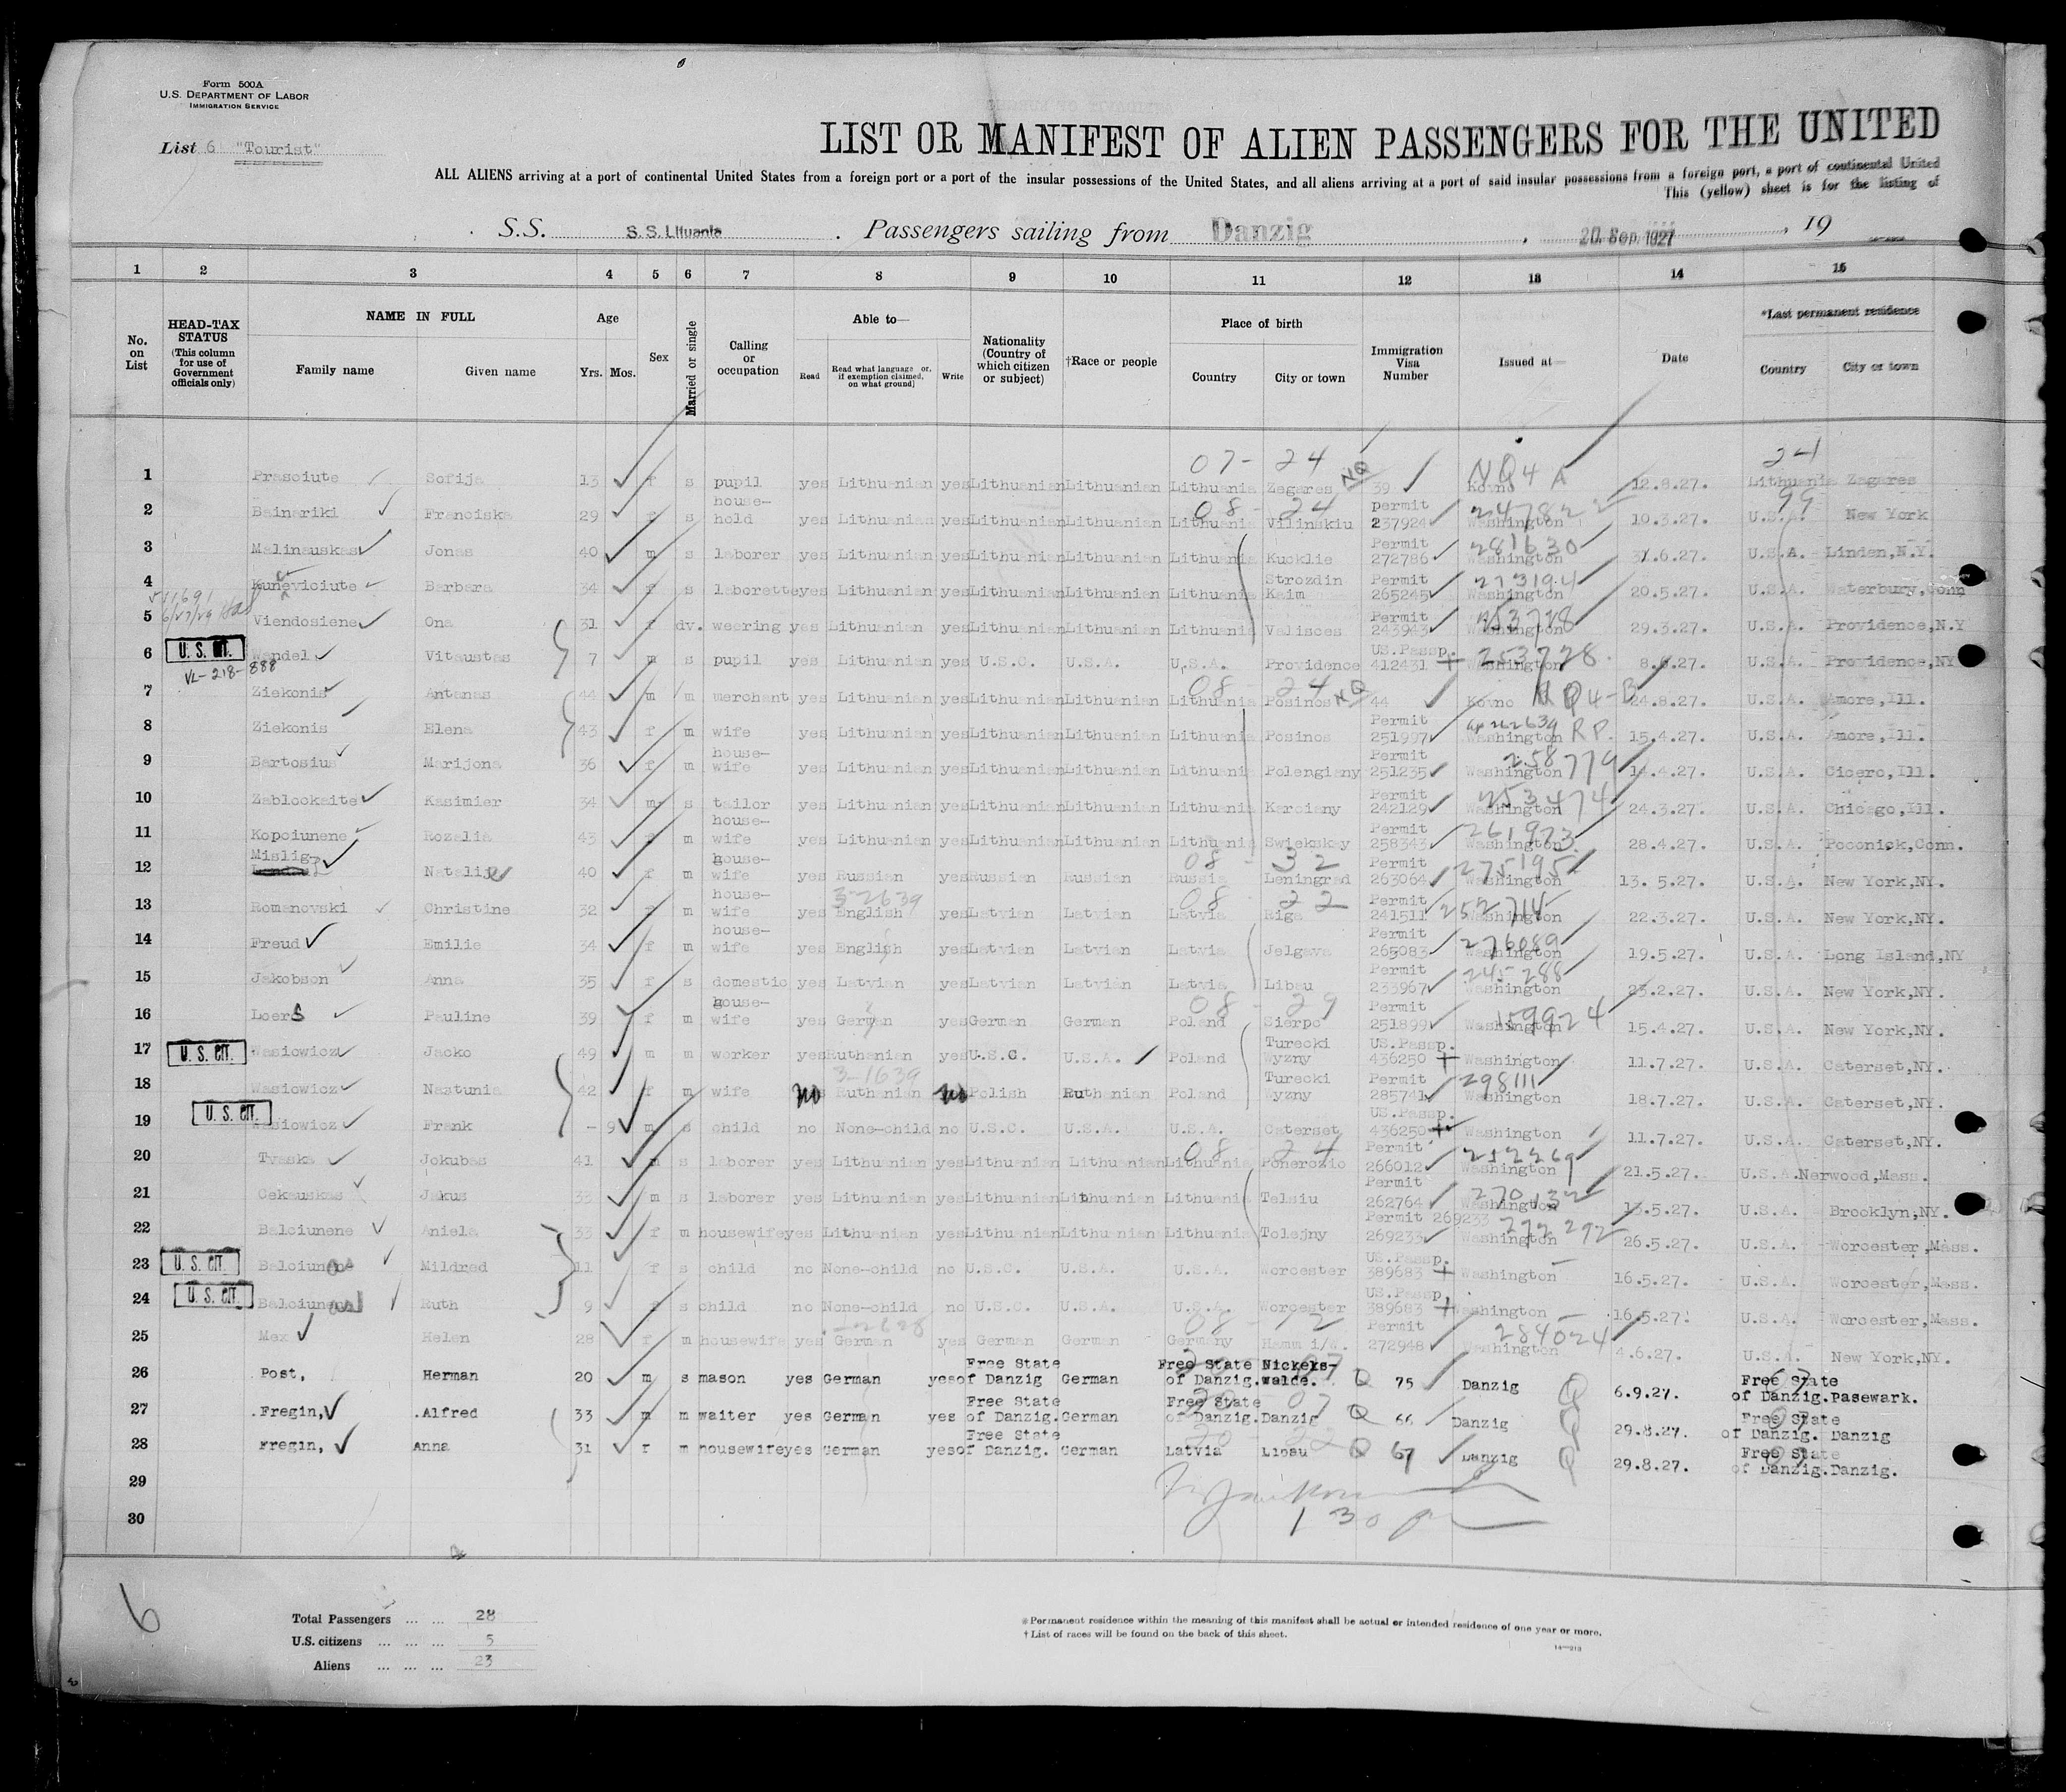 Form 500A
U.S. DEPARTMENT OF LABOR
IMMIGRATION SERVICE
List 6 "Tourist"
LIST OR MANIFEST OF ALIEN PASSENGERS FOR THE UNITED
ALL ALIENS arriving at a port of continental United States from a foreign port or a port of the insular possessions of the United States, and all aliens arriving at a port of said insular possessions from a foreign port, a port of continental United
This (yellow) sheet is for the listing of
S.S. S.S. Lituania. Passengers sailing from Danzig, 20. Sep. 1927, 19
1 2 3 4 5 6 7 8 9 10 11 12 13 14 15
No. on List
HEAD-TAX STATUS (This column for use of Government officials only)
NAME IN FULL Family name Given name
Age Yrs. Mos.
Sex
Married or single
Calling or occupation
Able to— Read Read what language or, if exemption claimed, on what ground] Write
Nationality (Country of which citizen or subject)
†Race or people
Place of birth Country City or town
Immigration Visa Number
Issued at—
Date
*Last permanent residence Country City or town
07- 24 NQ NQ4 A 24
1 Prasciute Sofija 13 f s pupil yes Lithuanian yes Lithuanian Lithuanian Lithuania Zegares 39 Kovno 12.8.27. Lithuania Zagares
08 - 24 24782 99
2 Bainariki Franciska 29 f s house-hold yes Lithuanian yes Lithuanian Lithuanian Lithuania Vilinskiu permit 237924 Washington 10.3.27. U.S.A. New York
281630
3 Malinauskas Jonas 40 m s laborer yes Lithuanian yes Lithuanian Lithuanian Lithuania Kucklie Permit 272786 Washington 31.6.27. U.S.A. Linden,N.Y.
273194
4 Kuneviciute Barbara 34 f s laborette yes Lithuanian yes Lithuanian Lithuanian Lithuania Strozdin Kaim Permit 265245 Washington 20.5.27. U.S.A. Waterbury,Conn
253728
5 Viendosiene Ona 31 f dv. weering yes Lithuanian yes Lithuanian Lithuanian Lithuania Valisces Permit 243943 Washington 29.3.27. U.S.A. Providence,N.Y
253728
6 U. S. CIT. Wandel Vitaustas 7 m s pupil yes Lithuanian yes U.S.C. U.S.A. U.S.A. Providence US.Passp. 412431 Washington 8.6.27. U.S.A. Providence,NY
VL-218-888
08 - 24 NQ NQ4-B
7 Ziekonis Antanas 44 m m merchant yes Lithuanian yes Lithuanian Lithuanian Lithuania Posinos 44 Kovno 24.8.27. U.S.A. Amore,Ill.
262639 RP.
8 Ziekonis Elena 43 f m wife yes Lithuanian yes Lithuanian Lithuanian Lithuania Posinos Permit 251997 Washington 15.4.27. U.S.A. Amore,Ill.
258779
9 Bartosius Marijona 36 f m house-wife yes Lithuanian yes Lithuanian Lithuanian Lithuania Polengiany Permit 251235 Washington 14.4.27. U.S.A. Cicero,Ill.
253474
10 Zablockaite Kasimier 34 m s tailor yes Lithuanian yes Lithuanian Lithuanian Lithuania Karciany Permit 242129 Washington 24.3.27. U.S.A. Chicago,Ill.
261973
11 Kopciunene Rozalia 43 f m house-wife yes Lithuanian yes Lithuanian Lithuanian Lithuania Swiekskey Permit 258343 Washington 28.4.27. U.S.A. Poconick,Conn.
08 - 32 275195
12 Mislig Natalije 40 f m house-wife yes Russian yes Russian Russian Russia Leningrad Permit 263064 Washington 13. 5.27. U.S.A. New York,NY.
3-2639 08 22 252714
13 Romanovski Christine 32 f m house-wife yes English yes Latvian Latvian Latvia Riga Permit 241511 Washington 22.3.27. U.S.A. New York,NY.
276089
14 Freud Emilie 34 f m house-wife yes English yes Latvian Latvian Latvia Jelgava Permit 265083 Washington 19.5.27. U.S.A. Long Island,NY
245288
15 Jakobson Anna 35 f s domestic yes Latvian yes Latvian Latvian Latvia Libau Permit 233967 Washington 23.2.27. U.S.A. New York,NY.
08 - 29 159924
16 Loers Pauline 39 f m house-wife yes German yes German German Poland Sierpc Permit 251899 Washington 15.4.27. U.S.A. New York,NY.
17 U. S. CIT. Wasiowicz Jacko 49 m m worker yes Ruthenian yes U.S.C. U.S.A. Poland Turecki Wyzny US.Passp. 436250 Washington 11.7.27. U.S.A. Caterset,NY.
3-1639 298111
18 Wasiowicz Nastunia 42 f m wife no Ruthanian no Polish Ruthanian Poland Turecki Wyzny Permit 285741 Washington 18.7.27. U.S.A. Caterset,NY.
19 U. S. CIT. Wasiowicz Frank - 9 m s child no None-child no U.S.C. U.S.A. U.S.A. Caterset US.Passp. 436250 Washington 11.7.27. U.S.A. Caterset,NY.
08 24 252269
20 Tvaska Jokubas 41 m s laborer yes Lithuanian yes Lithuanian Lithuanian Lithuania Ponerozio Permit 266012 Washington 21.5.27. U.S.A. Nerwood,Mass.
270132
21 Cekauskas Jakus 33 m s laborer yes Lithuanian yes Lithuanian Lithuanian Lithuania Telsiu Permit 262764 Washington 13.5.27. U.S.A. Brooklyn,NY.
272292
22 Balciunene Aniela 33 f m housewife yes Lithuanian yes Lithuanian Lithuanian Lithuania Tolejny Permit 269233 269233 Washington 26.5.27. U.S.A. Worcester,Mass.
23 U. S. CIT. Balciunene Mildred 11 f s child no None-child no U.S.C. U.S.A. U.S.A. Worcester US.Passp. 389683 Washington 16.5.27. U.S.A. Worcester,Mass.
24 U. S. CIT. Balciunene Ruth 9 f s child no None-child no U.S.C. U.S.A. U.S.A. Worcester US.Passp. 389683 Washington 16.5.27. U.S.A. Worcester,Mass.
08 - 12 284024
25 Mex Helen 28 f m housewife yes German yes German German Germany Hamm i/W. Permit 272948 Washington 4.6.27. U.S.A. New York,NY.
26 Post, Herman 20 m s mason yes German yes Free State of Danzig German Free State of Danzig. Nickels-walde. Q 75 Danzig Q 6.9.27. Free State of Danzig. Pasewark.
27 Fregin, Alfred 33 m m waiter yes German yes Free State of Danzig. German Free State of Danzig. Danzig Q 66 Danzig Q 29.8.27. Free State of Danzig. Danzig
28 Fregin, Anna 31 f m housewife yes German yes Free State of Danzig. German Latvia Libau Q 67 Danzig Q 29.8.27. Free State of Danzig. Danzig.
29
30
1 30 pm
6
Total Passengers ... ... 28
U.S. citizens ... ... ... 5
Aliens ... ... ... 23
* Permanent residence within the meaning of this manifest shall be actual or intended residence of one year or more.
† List of races will be found on the back of this sheet.
14—213